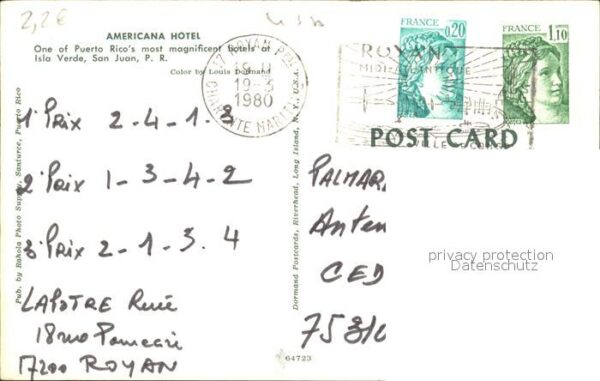 2,2€
AMERICANA HOTEL
One of Puerto Rico's most magnificent hotels at
Isla Verde, San Juan, P. R.
Color by Louis Dormand
17 ROYAN PPAL
19-3
1980
CHARENTE MARITIME
FRANCE
0,20
FRANCE
1,10
ROYAN
POST CARD
1° Prix 2-4-1-3
2° Prix 1-3-4-2
3° Prix 2-1-3.4
LAPOTRE René
17200 ROYAN
Pub. by Rahola Photo Supply, Santurce, Puerto Rico
Dormand Postcards, Riverhead, Long Island, N. Y., U.S.A.
64723
PALMAR
Anten
CED
privacy protection
Datenschutz